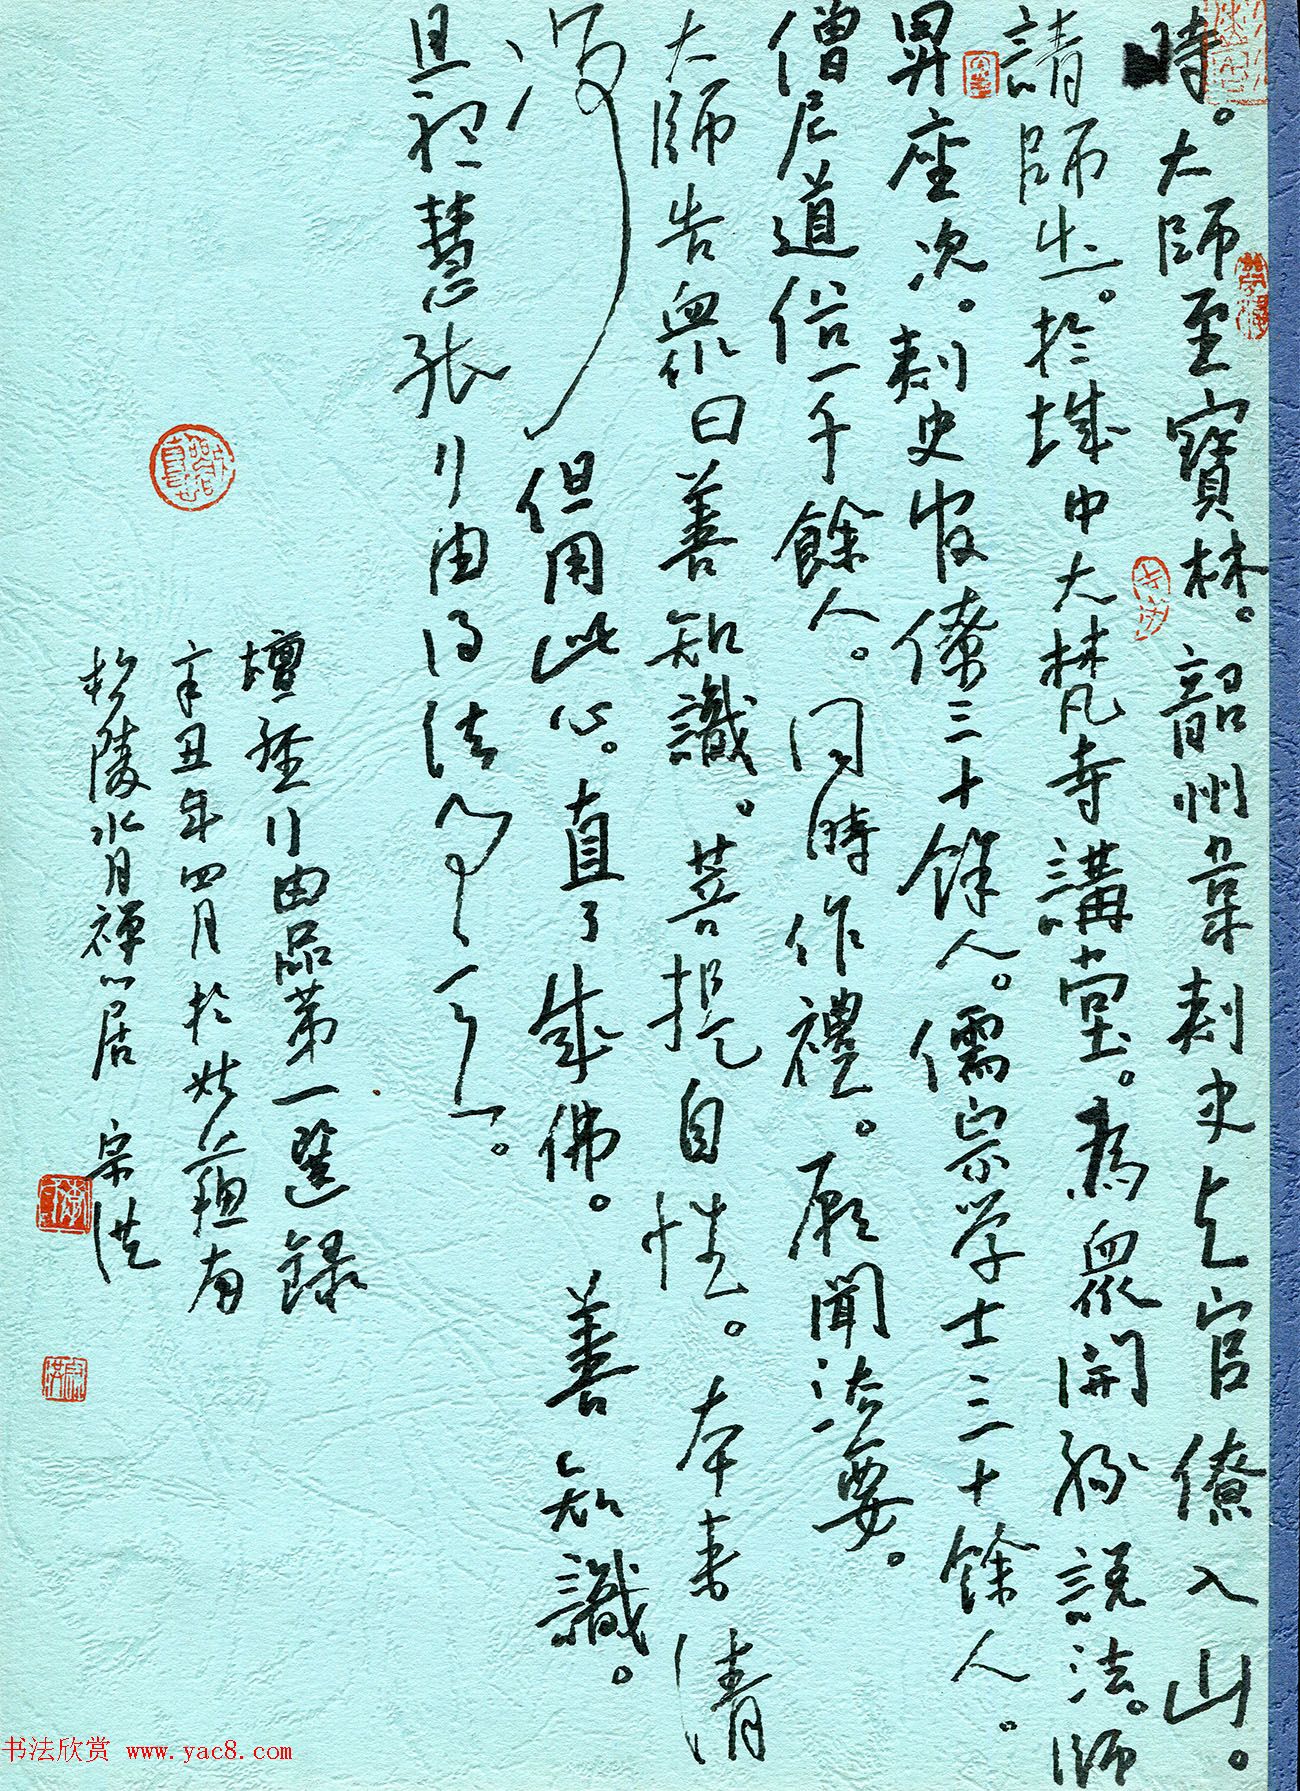 時。大師至寶林。韶州韋刺史與官僚入山。
請師出。於城中大梵寺講堂。為眾開緣說法。師
昇座次。刺史官僚三十餘人。儒宗学士三十餘人。
僧尼道俗一千餘人。同時作禮。願聞法要。
大師告眾曰善知識。菩提自性。本来清
淨 但用此心。直了成佛。善知識。
且聽慧能行由得法事
壇經行由品第一選錄
辛丑年四月於姑蘇南
松陵水月禪居 宗洪
书法欣赏 www.yac8.com